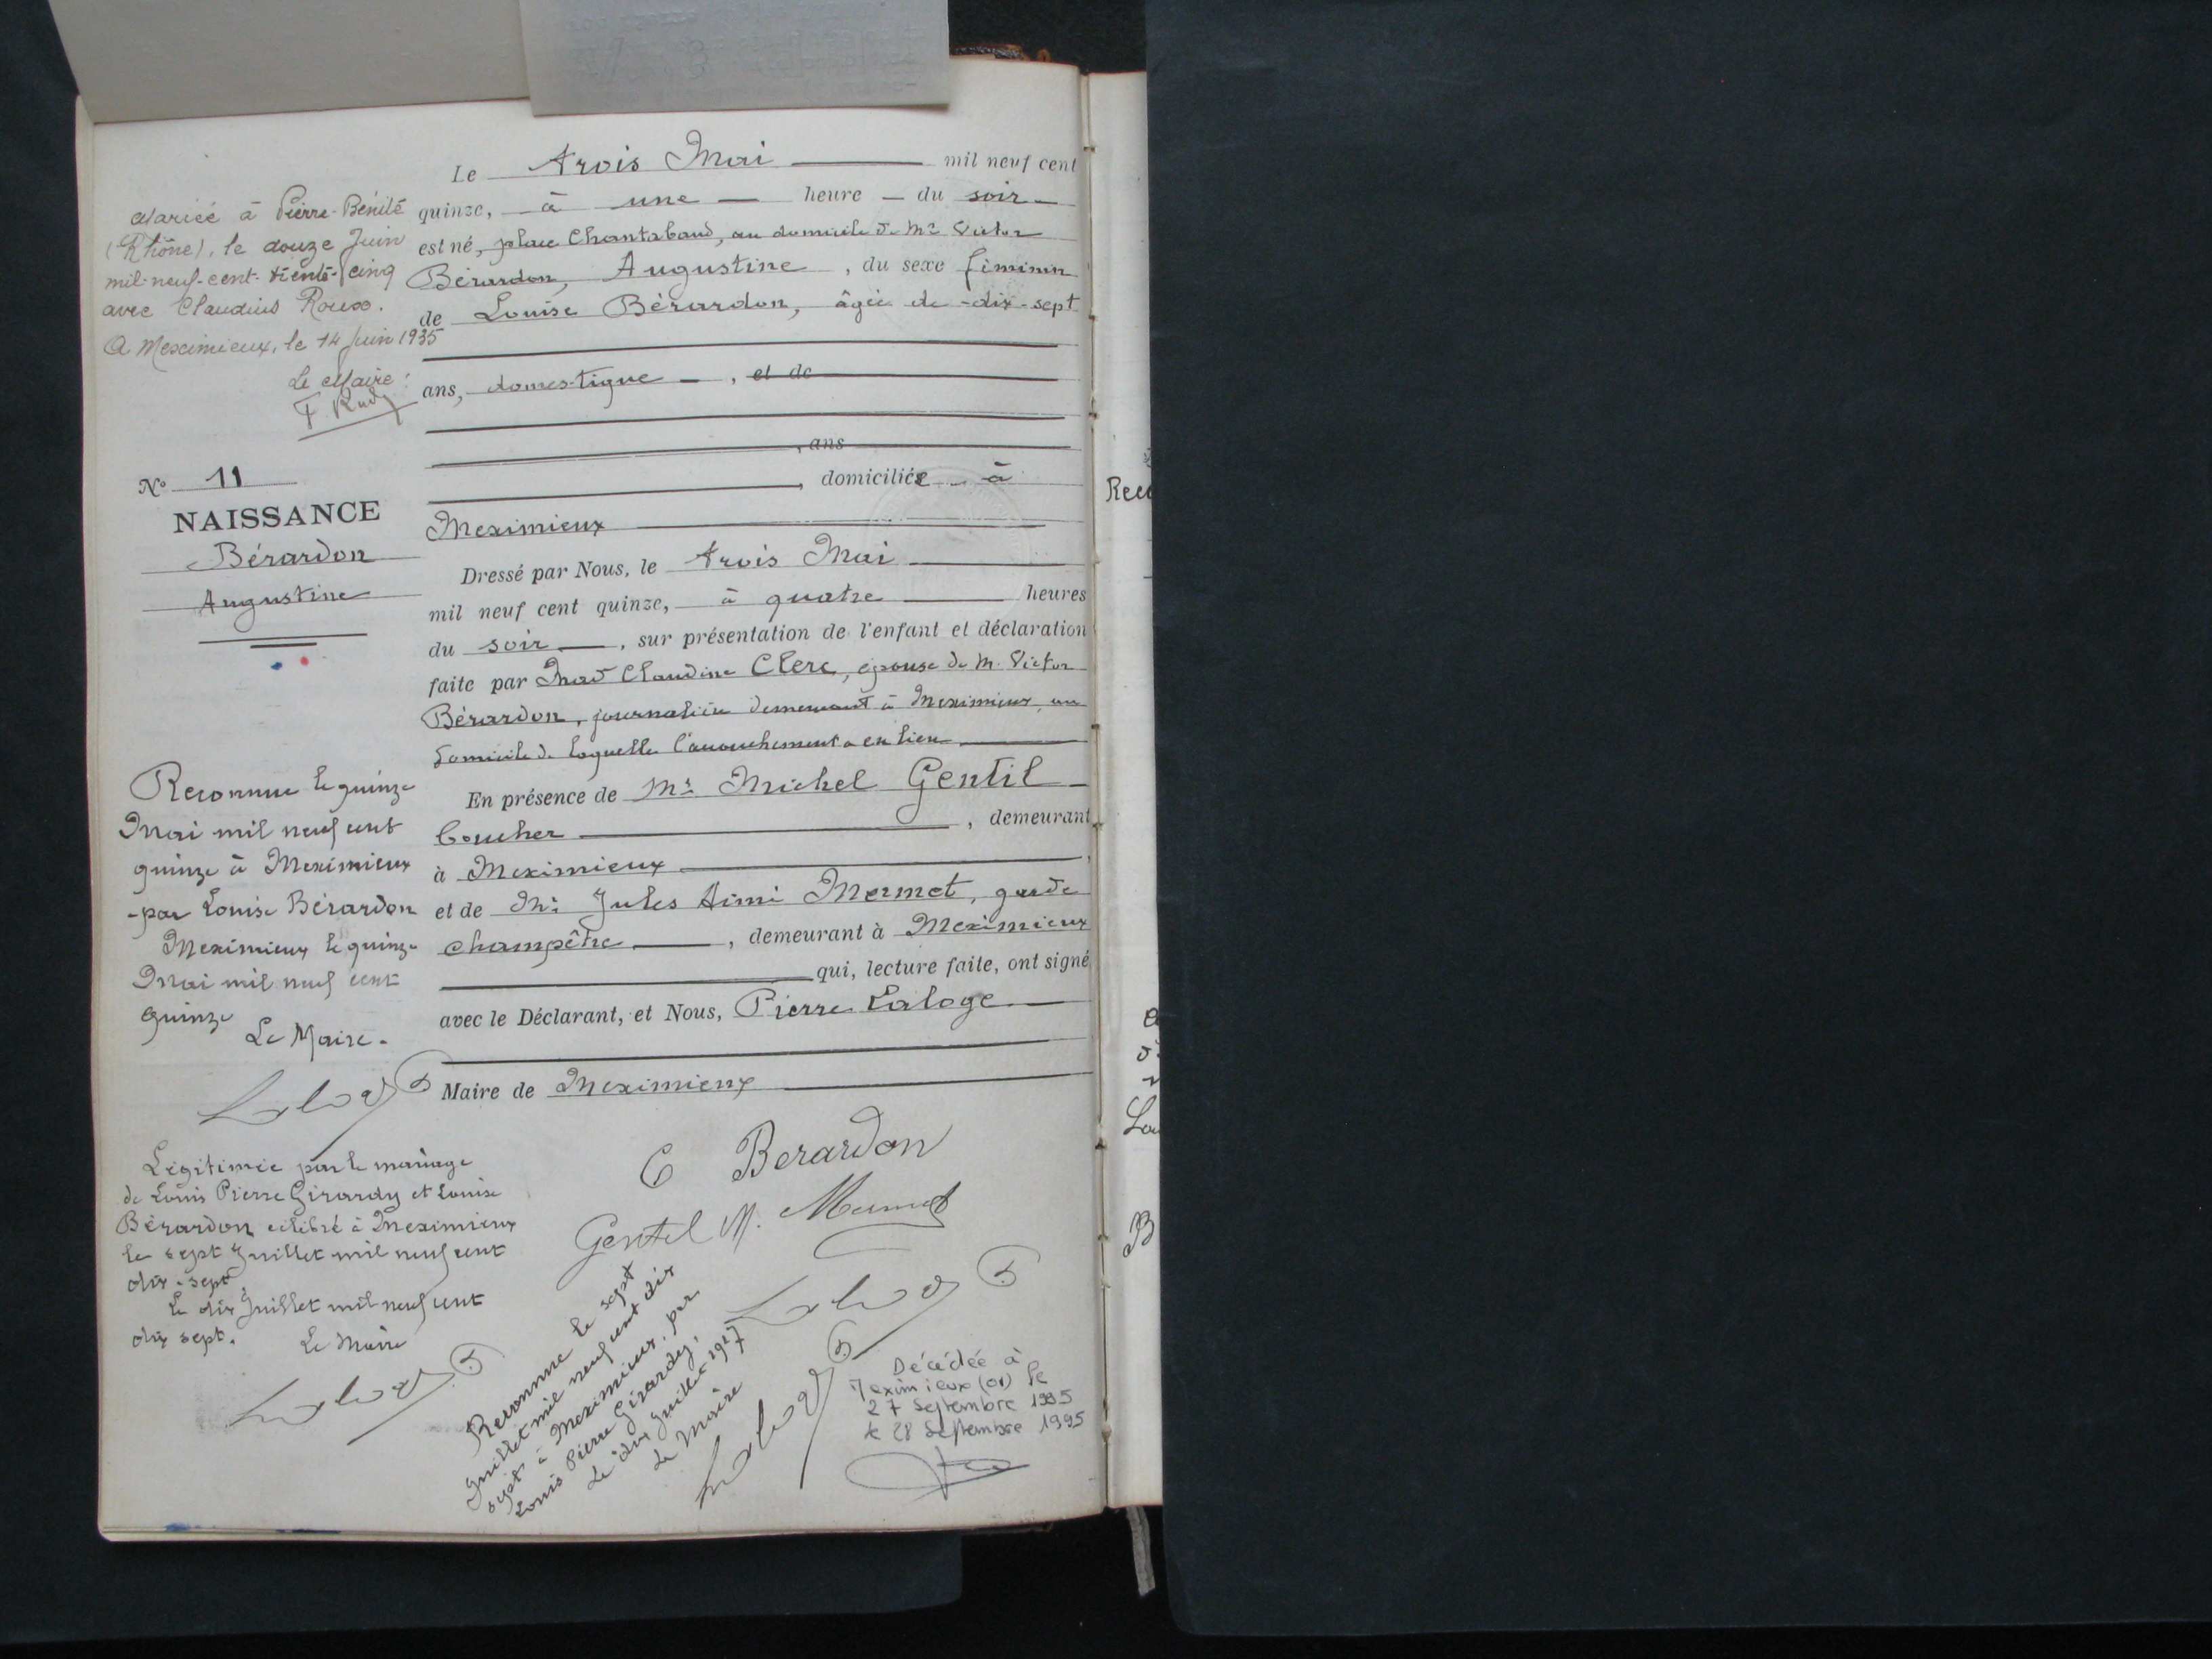 Mariée à Pierre-Bénite
(Rhône), le douze Juin
mil-neuf-cent-trente-cinq
avec Claudius Roux.
A Meximieux, le 14 Juin 1935
Le Maire :
Nº 11
NAISSANCE
Bérardon
Augustine
Reconnue le quinze
Mai mil neuf cent
quinze à Meximieux
par Louise Bérardon
Meximieux le quinze
Mai mil neuf cent
quinze
Le Maire.
Légitimée par le mariage
de Louis Pierre Girardy et Louise
Bérardon célébré à Meximieux
le sept Juillet mil neuf cent
dix-sept
Le dix Juillet mil neuf cent
dix sept.
Le Maire
Le trois Mai mil neuf cent
quinze, à une heure du soir
est né, place Chantabaud, au domicile de Mr Victor
Bérardon, Augustine, du sexe féminin
de Louise Bérardon, âgée de dix-sept
ans, domestique, et de
, ans
, domiciliée à
Meximieux
Dressé par Nous, le trois Mai
mil neuf cent quinze, à quatre heures
du soir, sur présentation de l'enfant et déclaration
faite par Mad Claudine Clerc, épouse de M. Victor
Bérardon, journalière demeurant à Meximieux, au
domicile de laquelle l'accouchement a eu lieu
En présence de Mr Michel Gentil
boucher, demeurant
à Meximieux,
et de Mr Jules Aimé Mermet, garde
champêtre, demeurant à Meximieux
qui, lecture faite, ont signé
avec le Déclarant, et Nous, Pierre Laloge
Maire de Meximieux
C Berardon
Gentil M. Mermet
Reconnue le sept
Juillet mil neuf cent dix
sept à Meximieux, par
Louis Pierre Girardy,
Le dix Juillet 1917
Le Maire
Décédée à
Meximieux (01) le
27 Septembre 1995
le 28 Septembre 1995